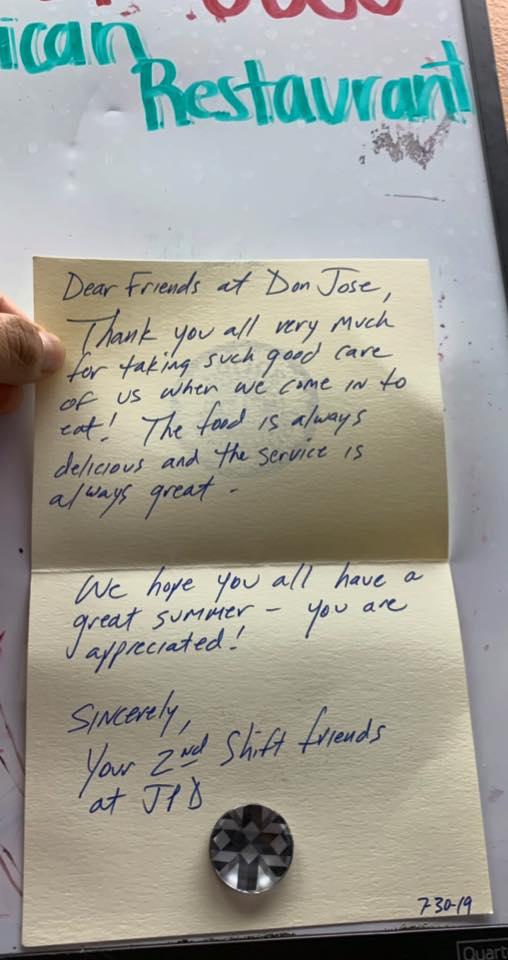 ican
Restaurant
Dear Friends at Don Jose,
Thank you all very much
for taking such good care
of us when we come in to
eat! The food is always
delicious and the service is
always great -
We hope you all have a
great summer - you are
appreciated!
Sincerely,
Your 2nd Shift friends
at JPD
7-30-19
Quart